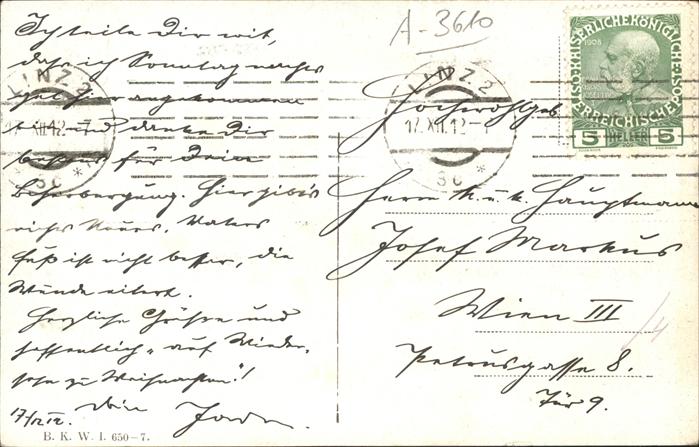 A-3610
Ich teile Dir mit,
daß ich Sonntag nachts
hier angekommen
bin und danke Dir
bestens für Deine
Beherbergung. Hier gibt's
nichts Neues. Vaters
Fuß ist nicht besser, die
Wunde eitert.
Herzliche Grüße und
hoffentlich „auf Wieder-
sehn zu Weihnachten"!
17/12 12. Dein
B. K. W. I. 650-7.
LINZ 2
17.XII.12-7
3c *
LINZ 2
17.XII.12-
3c *
KAISERLICHEKÖNIGLICHE
ÖSTERREICHISCHE POST
1908
5 HELLER 5
Hochwohlgeb.
Herrn k. u. k. Hauptmann
Josef Markus
Wien III
Petrusgasse 8.
Tür 9.
/4